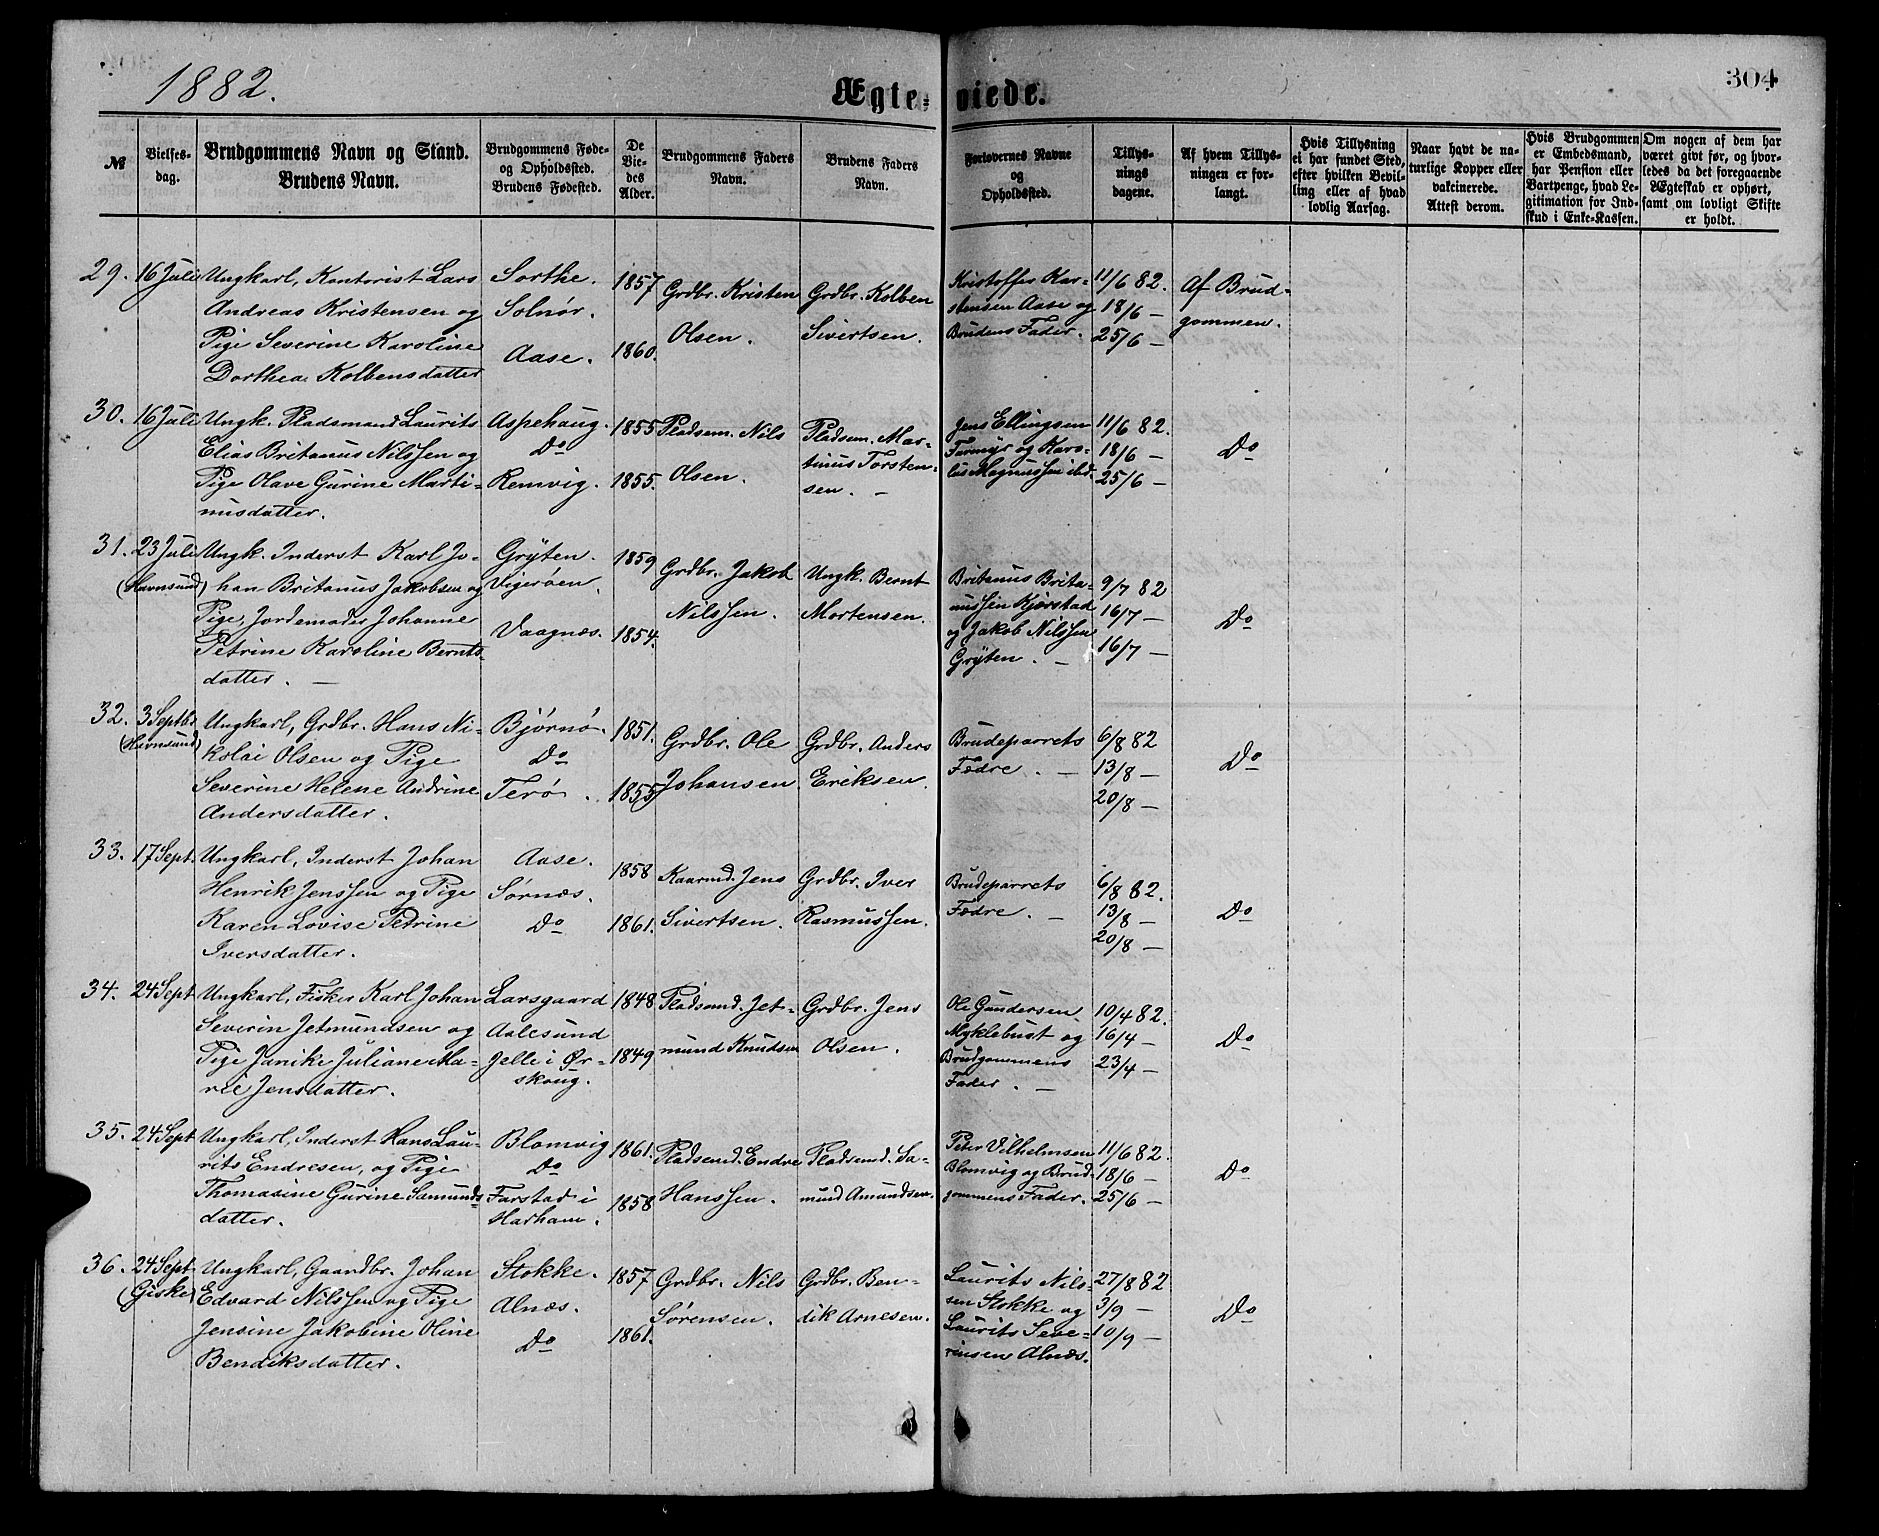 1882.
Ægte-
viede.
304
№
Vielses-
dag.
Brudgommens Navn og Stand.
Brudens Navn.
Brudgommens Føde-
og Opholdssted.
Brudens Fødested.
De
Vie-
des
Alder.
Brudgommens Faders
Navn.
Brudens Faders
Navn.
Forlovernes Navne
og
Opholdssted.
Tillys-
nings
dagene.
Af hvem Tillys-
ningen er for-
langt.
Hvis Tillysning
ei har fundet Sted,
efter hvilken Bevil-
ling eller af hvad
lovlig Aarsag.
Naar havt de na-
turlige Kopper eller
vakcinerede.
Attest derom.
Hvis Brudgommen
er Embedsmand,
har Pension eller
Vartpenge, hvad Le-
gitimation for Ind-
skud i Enke-Kassen.
Om nogen af dem har
været givt før, og hvor-
ledes da det foregaaende
Ægteskab er ophørt,
samt om lovligt Skifte
er holdt.
29.
16 Juli
Ungkarl, Kontorist Lars
Andreas Kristensen og
Pige Severine Karoline
Dorthea Kolbensdatter
Sorthe.
Solnør.
Aase.
1857
1860.
Grdbr. Kristen
Olsen.
Grdbr. Kolben
Sivertsen.
Kristoffer Kar-
stensen Aase og
Brudens Fader.
11/6 82.
18/6 —
25/6 —
Af Brud-
gommen.
30.
16 Juli
Ungk. Pladsmand Laurits
Elias Britanus Nilssen og
Pige Olave Gurine Marti-
nusdatter.
Aspehaug.
Do
Remvig.
1855
1855.
Pladsm. Nils
Olsen.
Pladsm. Mar-
tinus Torsten-
sen. —
Jens Ellingsen
Furmyr og Karo-
lus Magnussen ibd.
11/6 82.
18/6 —
25/6 —
Do
31.
23 Juli
(Havnsund)
Ungk. Inderst Karl Jo-
han Britanus Jakobsen og
Pige, Jordemoder Johanne
Petrine Karoline Bernts-
datter. —
Gryten.
Vigerøen.
Vaagnæs.
1859
1854.
Grdbr. Jakob
Nilssen.
Ungk. Bernt
Mortensen.
Britanus Brita-
nussen Kjærstad
og Jakob Nilssen
Gryten. —
9/7 82
16/7 —
16/7 —
Do
32.
3 Septbr
(Havnsund)
Ungkarl, Grdbr. Hans Ni-
kolai Olsen og Pige
Severine Helene Andrine
Andersdatter.
Bjørnø.
Do
Terø.
1851.
1855
Grdbr. Ole
Johansen
Grdbr. Anders
Eriksen.
Brudeparrets
Fædre. —
6/8 82
13/8 —
20/8 —
Do
33.
17 Sept.
Ungkarl, Inderst Johan
Henrik Jenssen og Pige
Karen Lovise Petrine
Iversdatter.
Aase.
Sørnæs.
Do
1858
1861.
Kaarmd. Jens
Sivertsen.
Grdbr. Iver
Rasmussen.
Brudeparrets
Fædre. —
6/8 82.
13/8 —
20/8 —
Do
34.
24 Sept
Ungkarl, Fisker Karl Johan
Severin Jetmundsen og
Pige Janike Juliane Ma-
rie Jensdatter.
Larsgaard
Aalesund
Jelle i Ør-
skoug.
1848
1849
Pladsmd. Jet-
mund Knudsen
Grdbr. Jens
Olsen.
Ole Gundersen
Myklebust og
Brudgommens
Fader. —
10/4 82.
16/4 —
23/4 —
Do
35.
24 Sept
Ungkarl, Inderst Hans Lau-
rits Endresen, og Pige
Thomasine Gurine Samunds-
datter.
Blomvig
Do
Farstad i
Harham.
1861.
1858
Pladsmd. Endre
Hanssen.
Pladsmd. Sa-
mund Amundsen.
Peter Vilhelmsen
Blomvig og Brud-
gommens Fader.
11/6 82.
18/6 —
25/6 —
Do
36.
24 Sept
(Giske)
Ungkarl, Gaardbr. Johan
Edvard Nilssen og Pige
Jensine Jakobine Oline
Bendiksdatter.
Stokke.
Alnæs.
Do
1857
1861.
Grdbr. Nils
Sørensen.
Grdbr. Ben-
dik Arnesen.
Laurits Nils-
sen Stokke og
Laurits Seve-
rinsen Alnæs.
27/8 82
3/9 —
10/9 —
Do